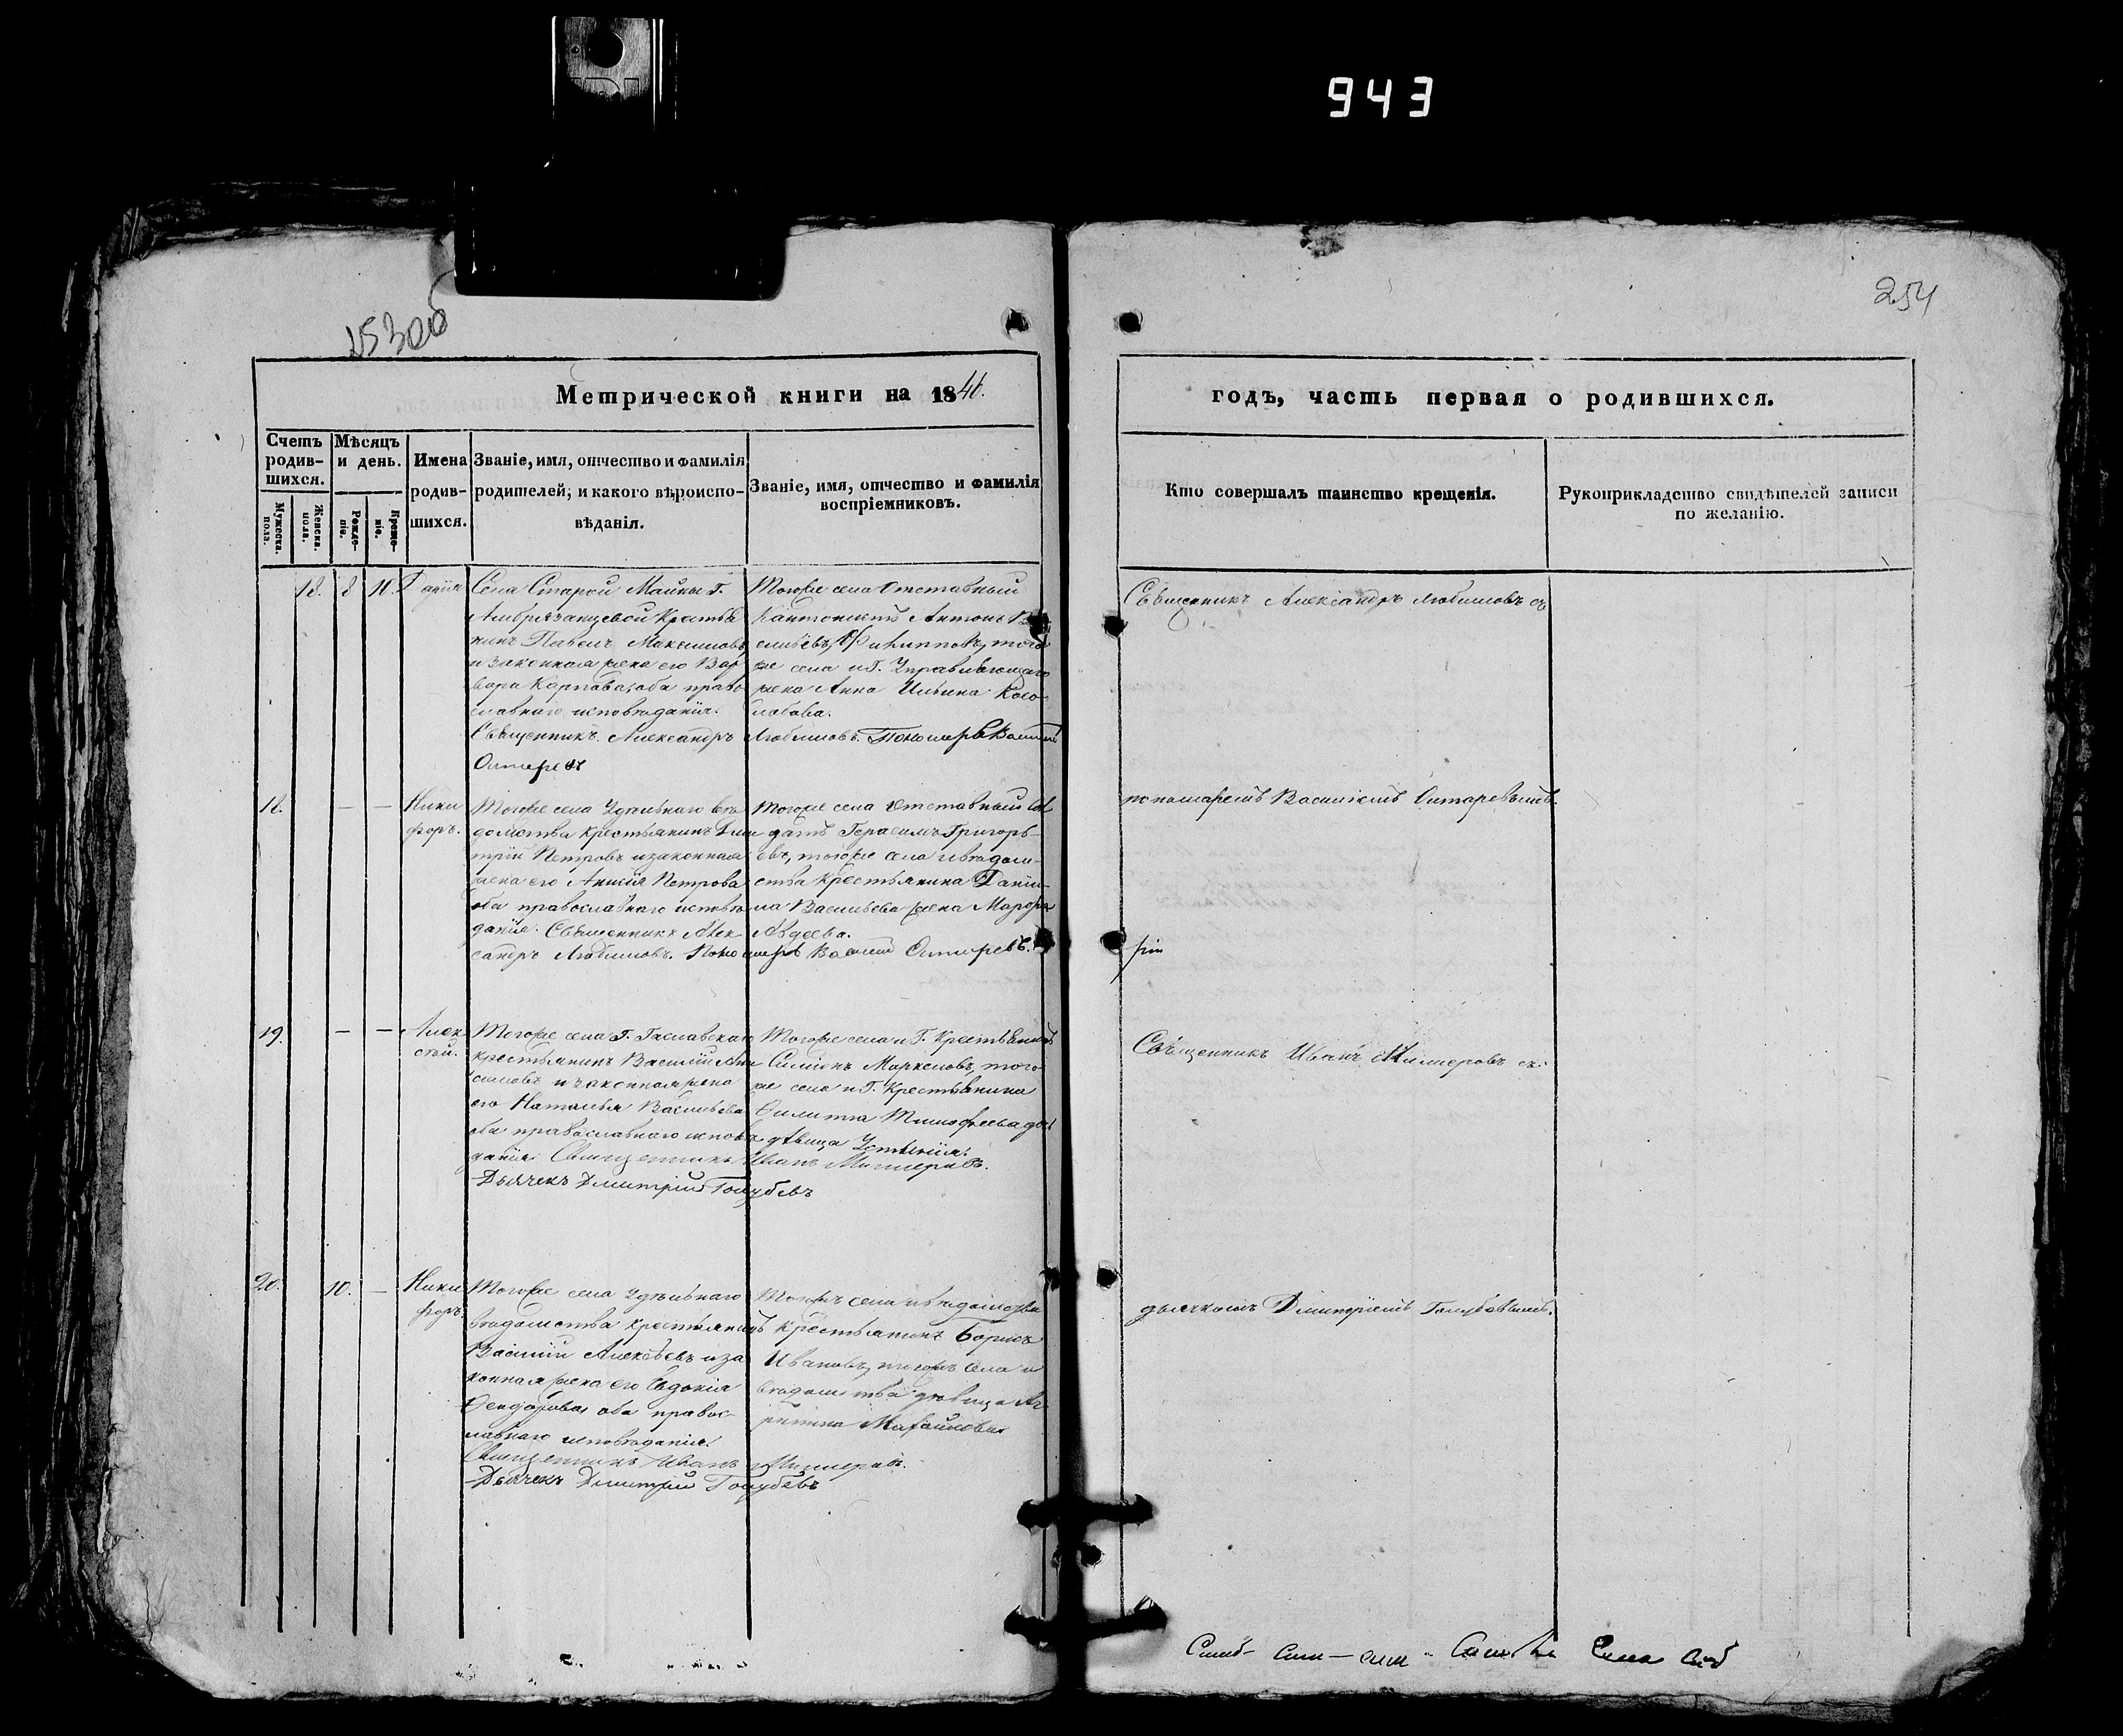 943
15300
254
Метрической книги на 1846.
годъ, часть первая о родившихся.
Счетъ родив-шихся.
Мѣсяцъ и день.
Имена родив-шихся.
Званіе, имя, отчество и фамилія родителей, и какого вѣроиспо-вѣданія.
Званіе, имя, отчество и фамилія воспріемниковъ.
Кто совершалъ таинство крещенія.
Рукоприкладство свидѣтелей записи по желанію.
Мужеска. пола.
Женска. пола.
Рожде-ніе.
Креще-ніе.
18. 8 10.
Села Старой Майны Г.
крестья
нинъ Павелъ Максимовъ
и законная жена его Вар
вара Карпова, оба право
славнаго исповѣданія.
Священникъ Александръ Любимовъ. Пономарь Василій
Тогоже села отставный
кантонистъ Антонъ Ва
сильевъ Филипповъ, того
же села и Г. Управляющаго
жена Анна Ильина
Священникъ Александръ Любимовъ съ
18. — —
Ники
форъ.
Тогоже села Удѣльнаго вѣ
домства крестьянинъ Дми
трій Петровъ и законная
жена его Петрова
оба православнаго исповѣ
данія. Священникъ Алек
сандръ Любимовъ. Пономарь Василій
Тогоже села отставный сол
датъ Герасимъ Григорь-
евъ, тогоже села и вѣдом-
ства крестьянина Дани-
ла Васильева жена
Авдеева.
пономаремъ Василіемъ
19. — —
Алек
сѣй.
Тогоже села Г.
крестьянинъ Василій
и законная жена
его Наталья Васильева
оба православнаго исповѣ
данія. Священникъ Иванъ
Дьячекъ Дмитрій Голубевъ
Тогоже села и Г. крестьянинъ
Симеонъ Маркеловъ, того
же села и Г. крестьянина
Филиппа Тимофеева
дѣвица
Священникъ Иванъ съ
20. 10. —
Ники
форъ.
Тогоже села Удѣльнаго
вѣдомства крестьянинъ
Василій Алексѣевъ и за
конная жена его Евдокія
Феодорова, оба правос-
лавнаго исповѣданія.
Священникъ Иванъ
Дьячекъ Дмитрій Голубевъ
Тогожъ села и вѣдомства
крестьянинъ Борисъ
Ивановъ, тогожъ села и
вѣдомства дѣвица
Михайлова
дьячкомъ Дмитріемъ Голубевымъ.